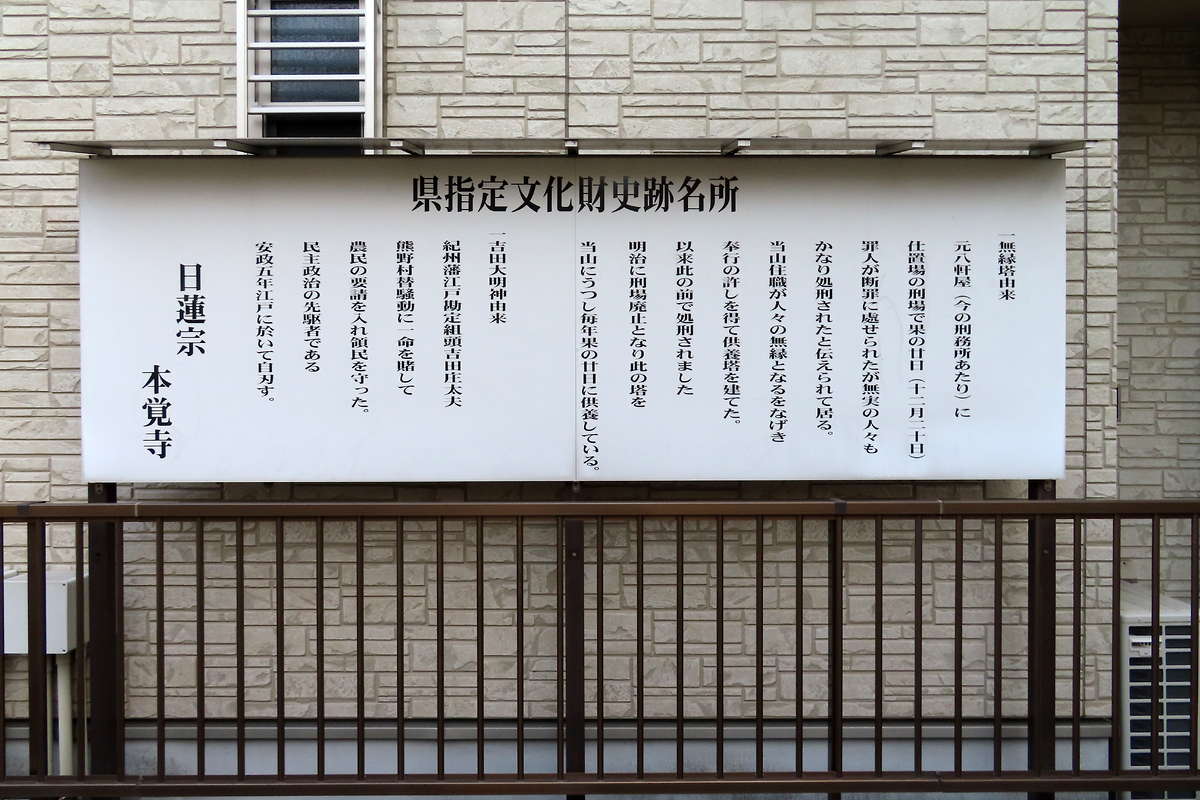 県指定文化財史跡名所
一無縁塔由来
元八軒屋（今の刑務所あたり）に
仕置場の刑場で果の廿日（十二月二十日）
罪人が断罪に處せられたが無実の人々も
かなり処刑されたと伝えられて居る。
当山住職が人々の無縁となるをなげき
奉行の許しを得て供養塔を建てた。
以来此の前で処刑されました
明治に刑場廃止となり此の塔を
当山にうつし毎年果の廿日に供養している。
一吉田大明神由来
紀州藩江戸勘定組頭吉田庄太夫
熊野村替騒動に一命を賭して
農民の要請を入れ領民を守った。
民主政治の先駆者である
安政五年江戸に於いて自刃す。
日蓮宗
本覚寺